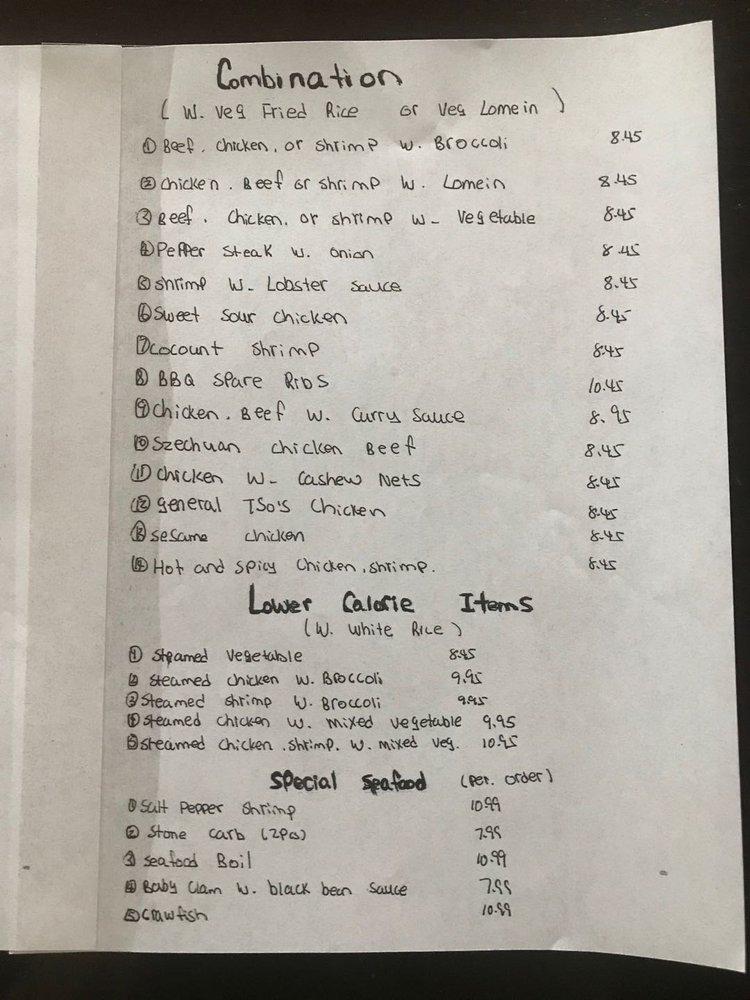 Combination
( W. Veg Fried Rice or Veg Lomein )
① Beef. Chicken. or Shrimp W. Broccoli 8.45
② Chicken. Beef or Shrimp W. Lomein 8.45
③ Beef. Chicken. or Shrimp W- Vegetable 8.45
④ Pepper Steak W. Onion 8.45
⑤ Shrimp W- Lobster Sauce 8.45
⑥ Sweet Sour Chicken 8.45
⑦ Cocount Shrimp 8.45
⑧ BBQ Spare Ribs 10.45
⑨ Chicken. Beef W. Curry Sauce 8.95
⑩ Szechuan Chicken Beef 8.45
⑪ Chicken W- Cashew Nets 8.45
⑫ General TSO'S Chicken 8.45
⑬ Sesame Chicken 8.45
⑭ Hot and Spicy Chicken. Shrimp. 8.45
Lower Calorie Items
(W. White Rice)
① Steamed Vegetable 8.45
② Steamed Chicken W. Broccoli 9.95
③ Steamed Shrimp W. Broccoli 9.95
④ Steamed Chicken W. Mixed Vegetable 9.95
⑤ Steamed Chicken. Shrimp. W. Mixed Veg. 10.95
Special Seafood (Per. Order)
① Salt Pepper Shrimp 10.99
② Stone Carb (2Pcs) 7.99
③ Seafood Boil 10.99
④ Baby Clam W. black bean Sauce 7.99
⑤ Crawfish 10.99